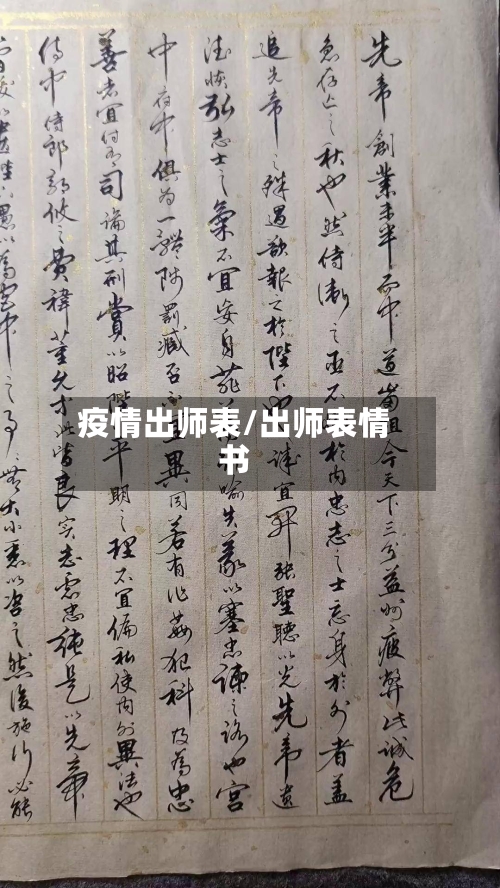 疫情出师表/出师表情
书
先帝創業未半而中道崩殂今天下三分益州疲弊此誠危
急存亡之秋也然侍衛之臣不於內忠志之士忘身於外者蓋
追先帝之殊遇欲報之於陛下誠宜開張聖聽以光先帝遺
德恢弘志士之氣不宜妄自菲喻失義以塞忠諫之路也宮
中府中俱為一體陟罰臧否不宜異同若有作姦犯科及為忠
善者宜付有司論其刑賞以昭陛平明之理不宜偏私使內外異法也
侍中侍郎郭攸之費禕董允等此皆良實志慮忠純是以先帝
愚以為宮中之事無大小悉以咨之然後施行必能